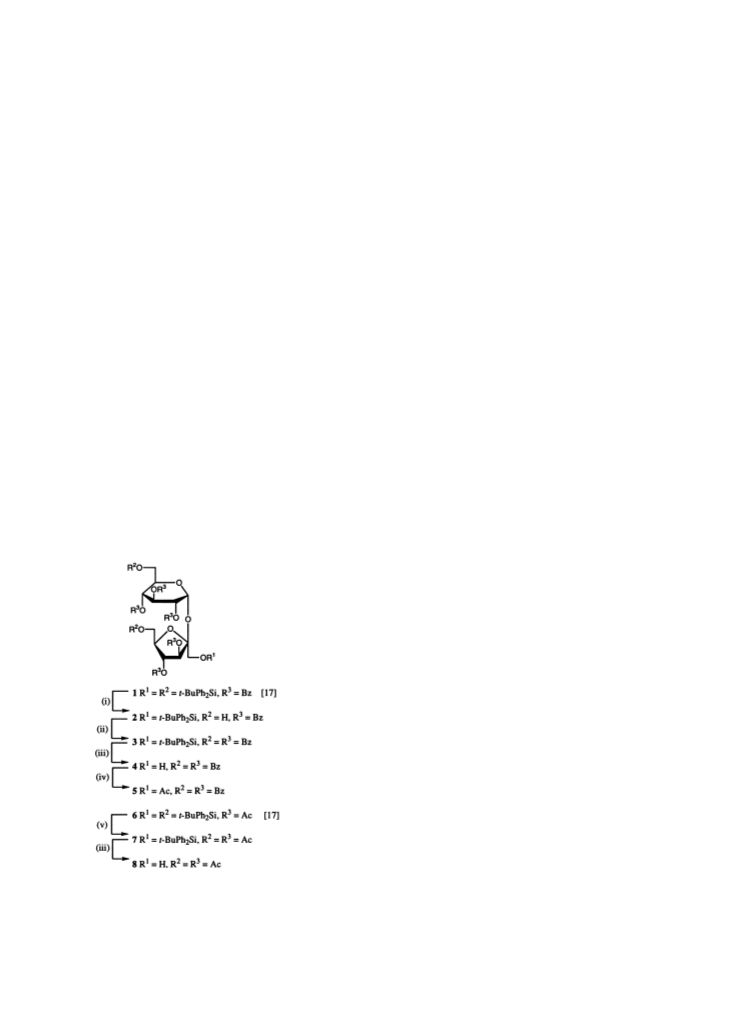 R²O
O
OR³
R³O
R³O
O
R²O
O
R³O
OR¹
R³O
1 R¹ = R² = t-BuPh₂Si, R³ = Bz [17]
(i)
2 R¹ = t-BuPh₂Si, R² = H, R³ = Bz
(ii)
3 R¹ = t-BuPh₂Si, R² = R³ = Bz
(iii)
4 R¹ = H, R² = R³ = Bz
(iv)
5 R¹ = Ac, R² = R³ = Bz
6 R¹ = R² = t-BuPh₂Si, R³ = Ac [17]
(v)
7 R¹ = t-BuPh₂Si, R² = R³ = Ac
(iii)
8 R¹ = H, R² = R³ = Ac